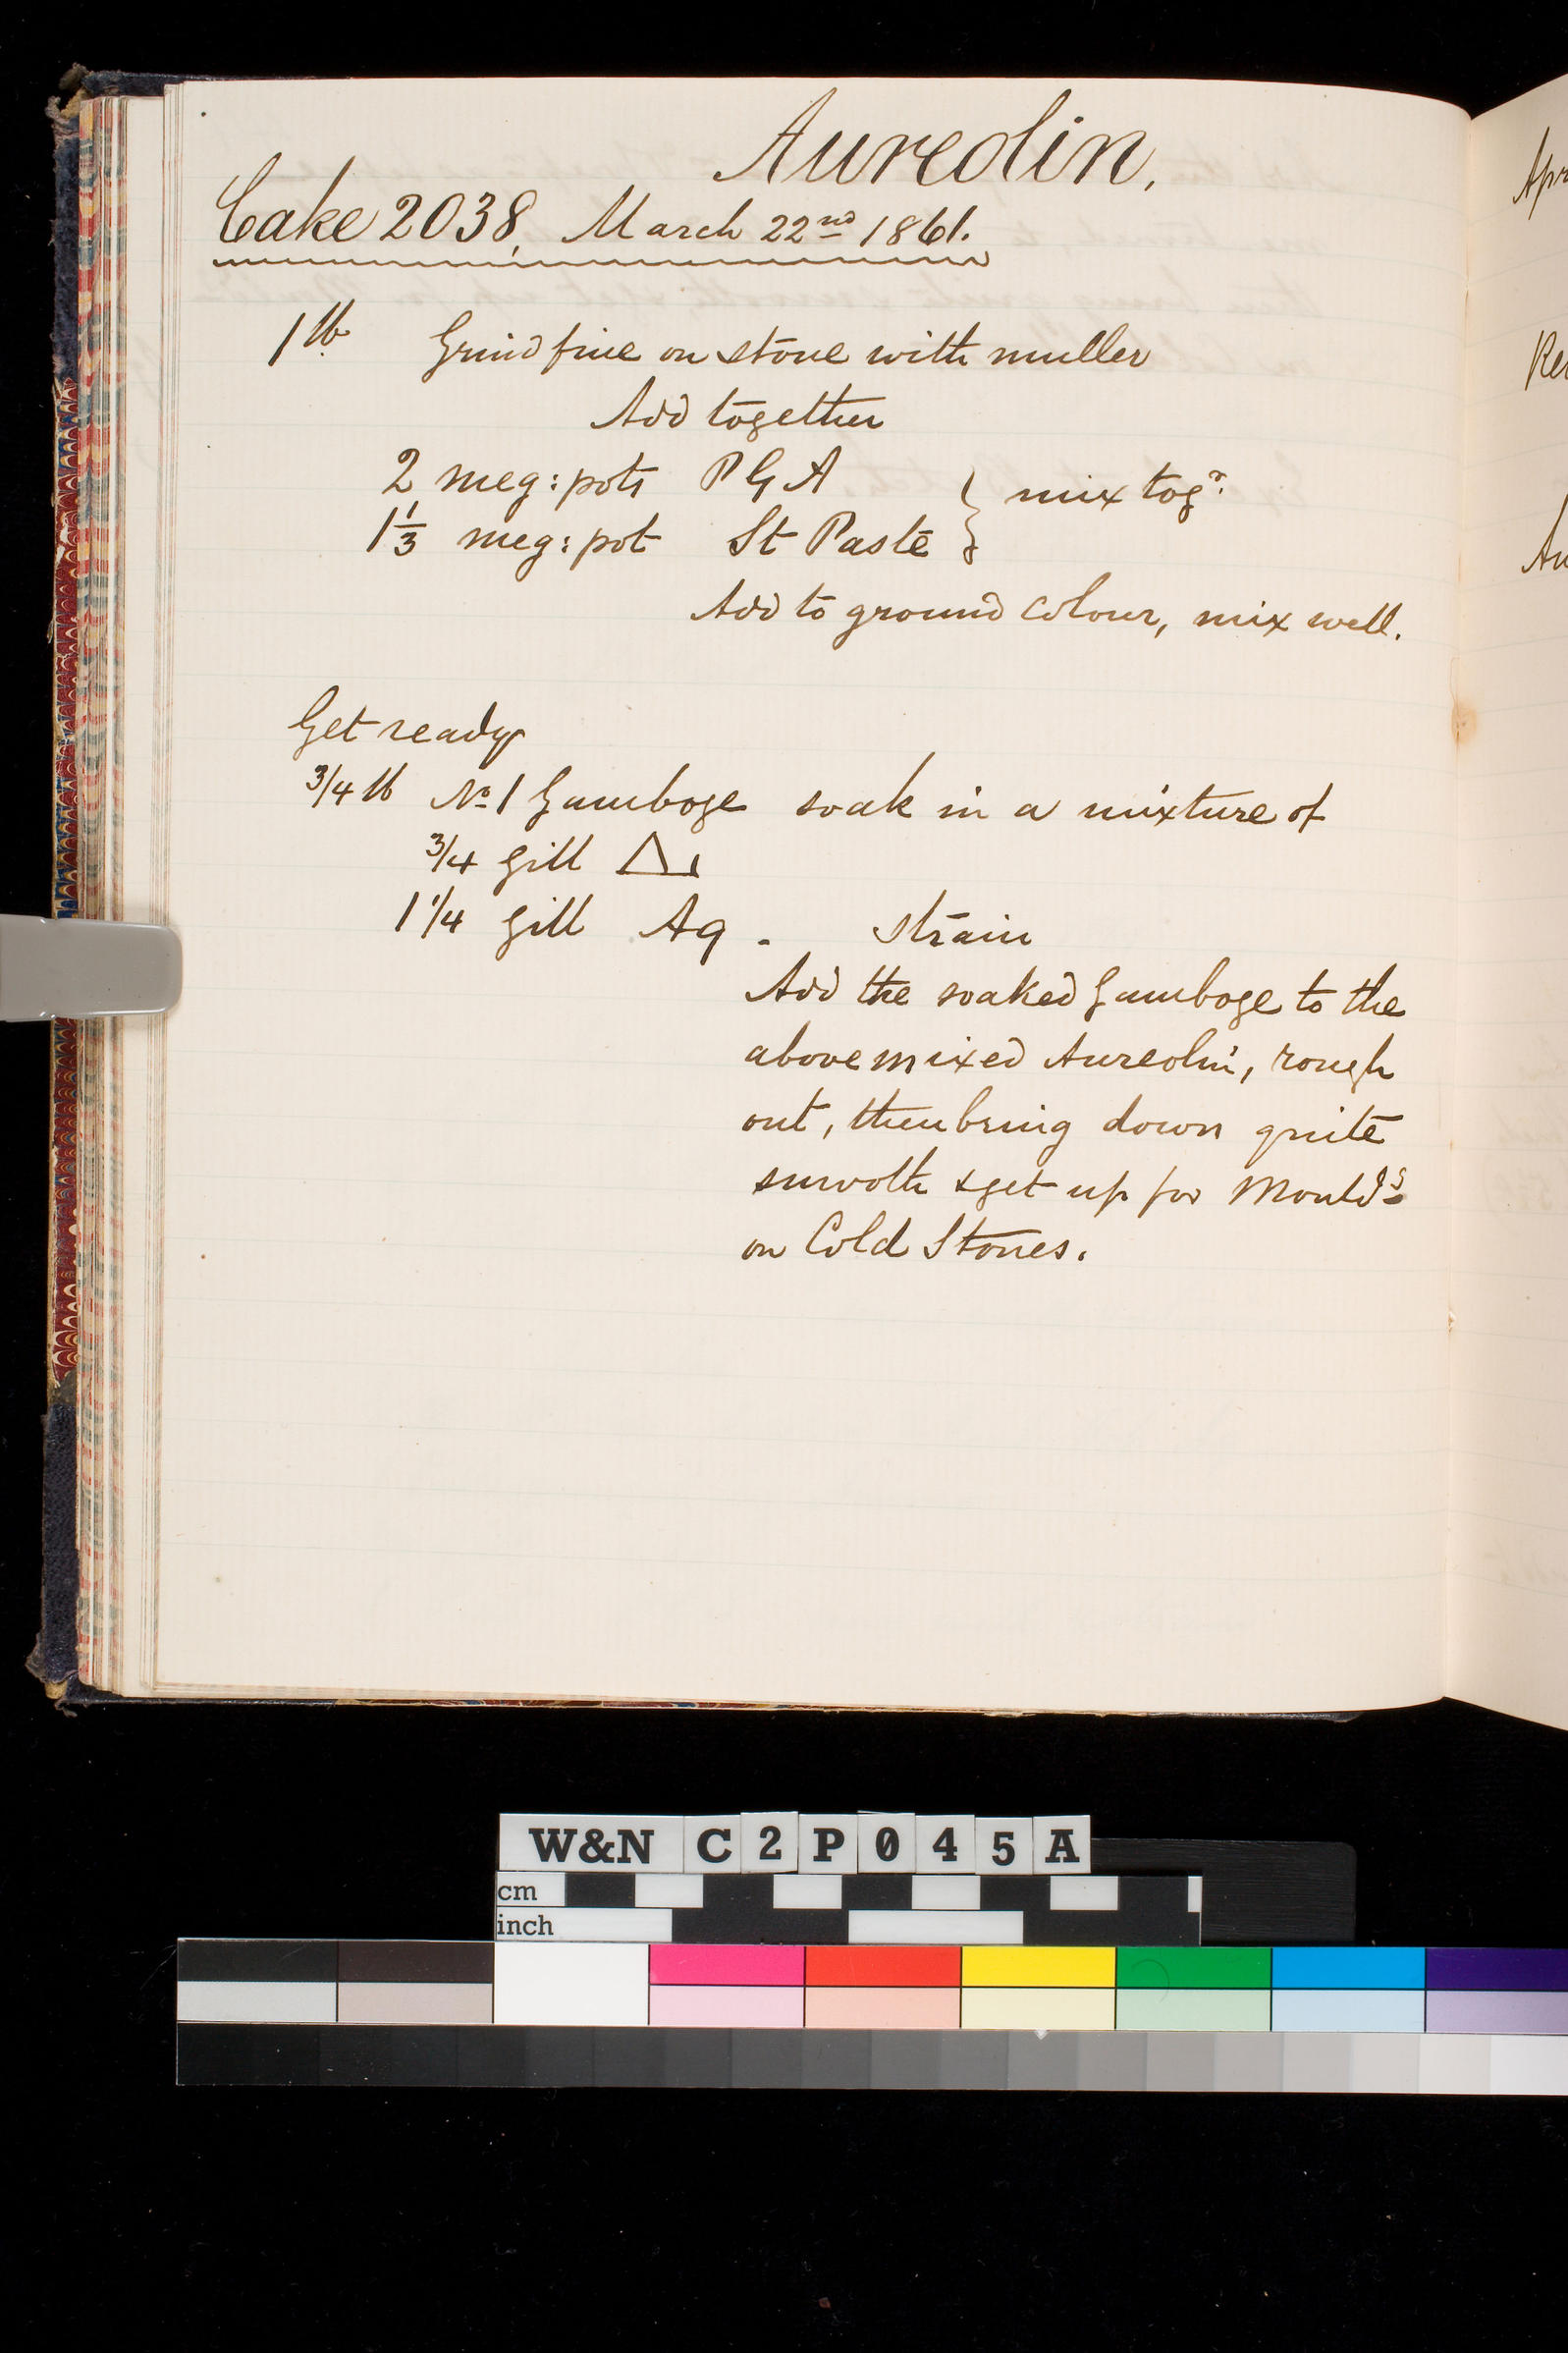 Aureolin.
Cake 2038, March 22nd 1861.
1 lb Grind fine on stone with muller
Add together
2 meg: pots P G A } mix togr.
1 1/3 meg: pot St Paste
Add to ground colour, mix well.
Get ready
3/4 lb No 1 Gamboge soak in a mixture of
3/4 gill
1 1/4 gill Aq. strain
Add the soaked Gamboge to the
above mixed Aureolin, rough
out, then bring down quite
smooth & get up for Mouldgs
on Cold Stones.
Apr
Au
W&N C2P045A
cm
inch